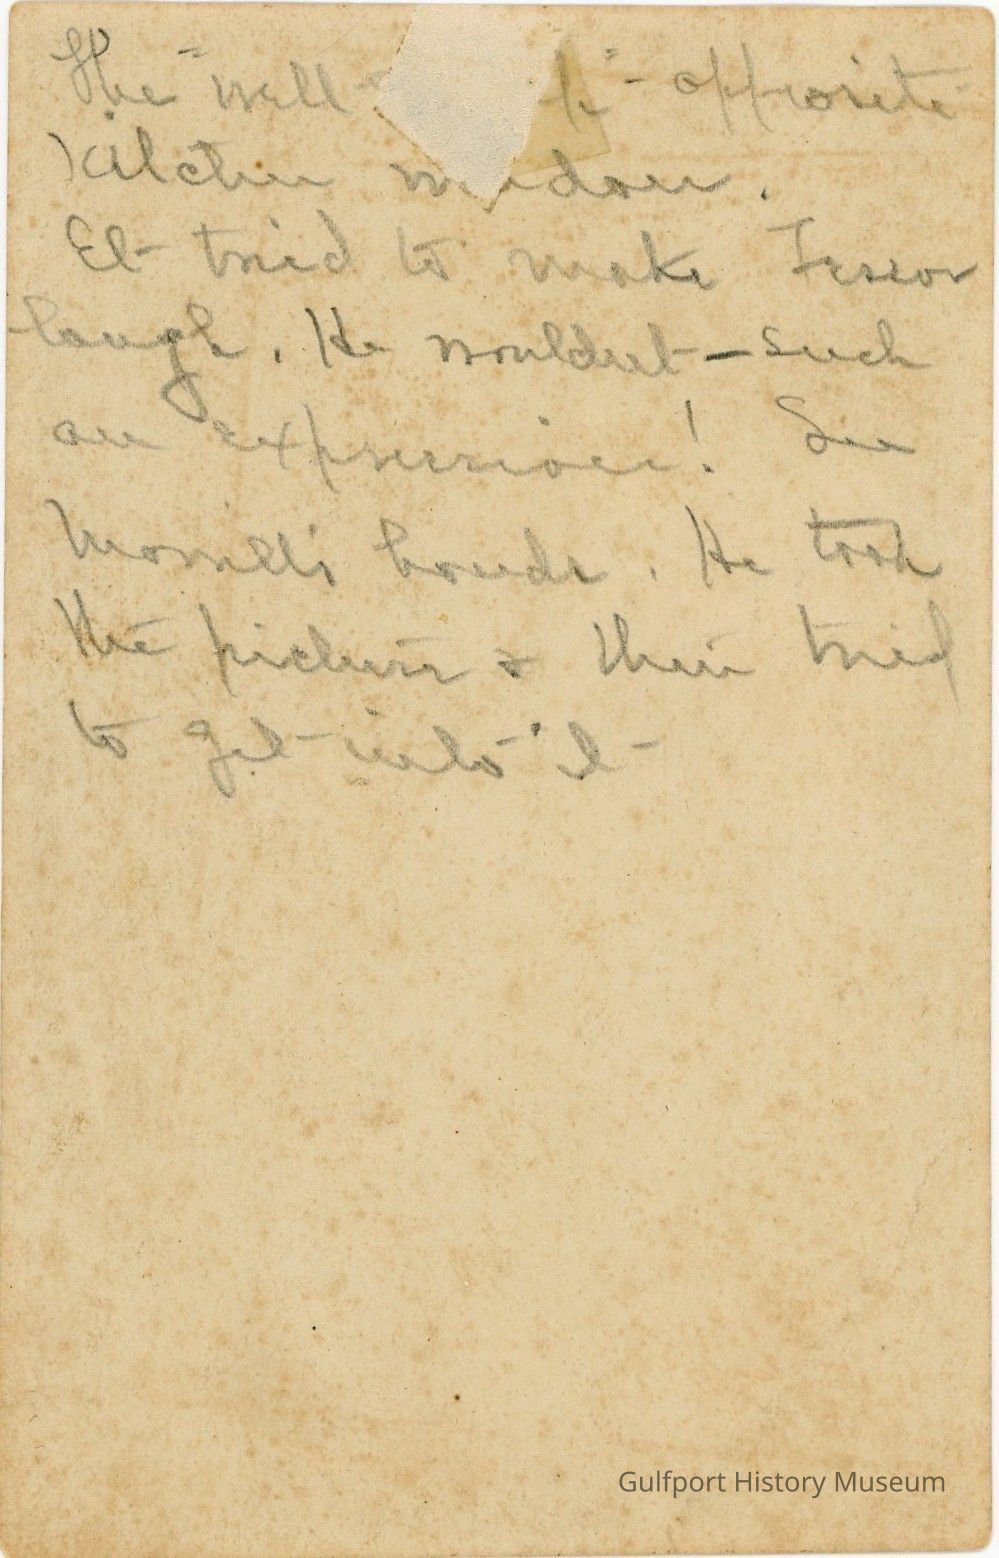 The "well- p"- opposite
Kitchen window.
El- tried to make
laugh. He wouldn't - such
an expression! See
Morrill's hands. He took
the picture & then tried
to get into it-
Gulfport History Museum